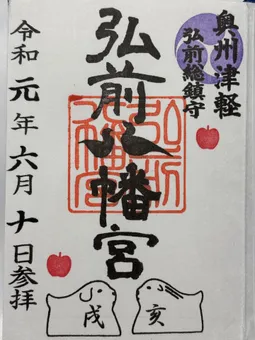 奥州津軽
弘前総鎮守
弘前八幡宮
令和元年六月十日参拝
戌
亥